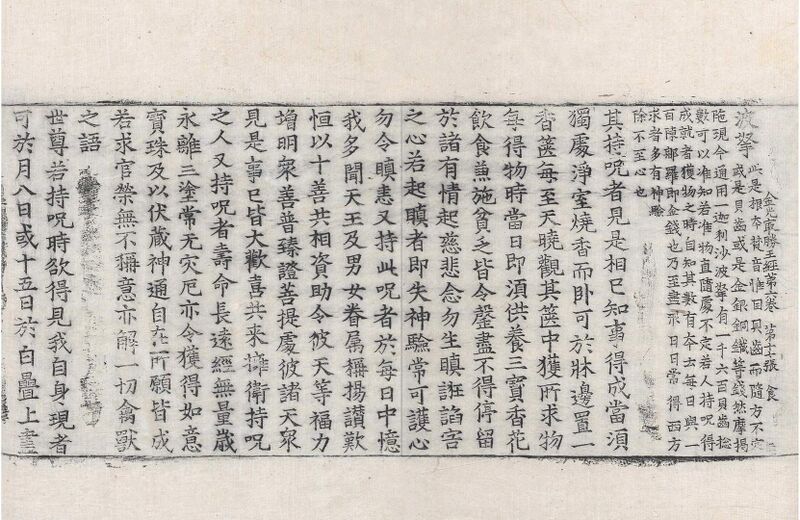 金光最勝王經第六卷 第十張 食
波拏
此是根本梵音惟目貝齒而隨方不定
或是貝齒或是金銀銅鐵等錢然摩揭
陁現今通用一迦利沙波拏有一千六百貝齒總
數可以准知若准物直隨處不定若人持呪得
成就者獲物之時自知其數有本云每日與一
百陳那羅即金錢也乃至盡形日日常得西方
求者多有神驗
除不至心也
其持呪者見是相已知事得成當湏
獨處淨室燒香而卧可於牀邊置一
香篋每至天曉觀其篋中獲所求物
每得物時當日即湏供養三寶香花
飲食兼施貧乏皆令罄盡不得停留
於諸有情起慈悲念勿生瞋誑諂害
之心若起瞋者即失神驗常可護心
勿令瞋恚又持此呪者於每日中憶
我多聞天王及男女眷属稱揚讃歎
恒以十善共相資助令彼天等福力
增明衆善普臻證菩提處彼諸天衆
見是事已皆大歡喜共來擁衛持呪
之人又持呪者壽命長遠經無量歲
永離三塗常无灾厄亦令獲得如意
寶珠及以伏蔵神通自在所願皆成
若求官榮無不稱意亦解一切禽獸
之語
世尊若持呪時欲得見我自身現者
可於月八日或十五日於白疊上畫